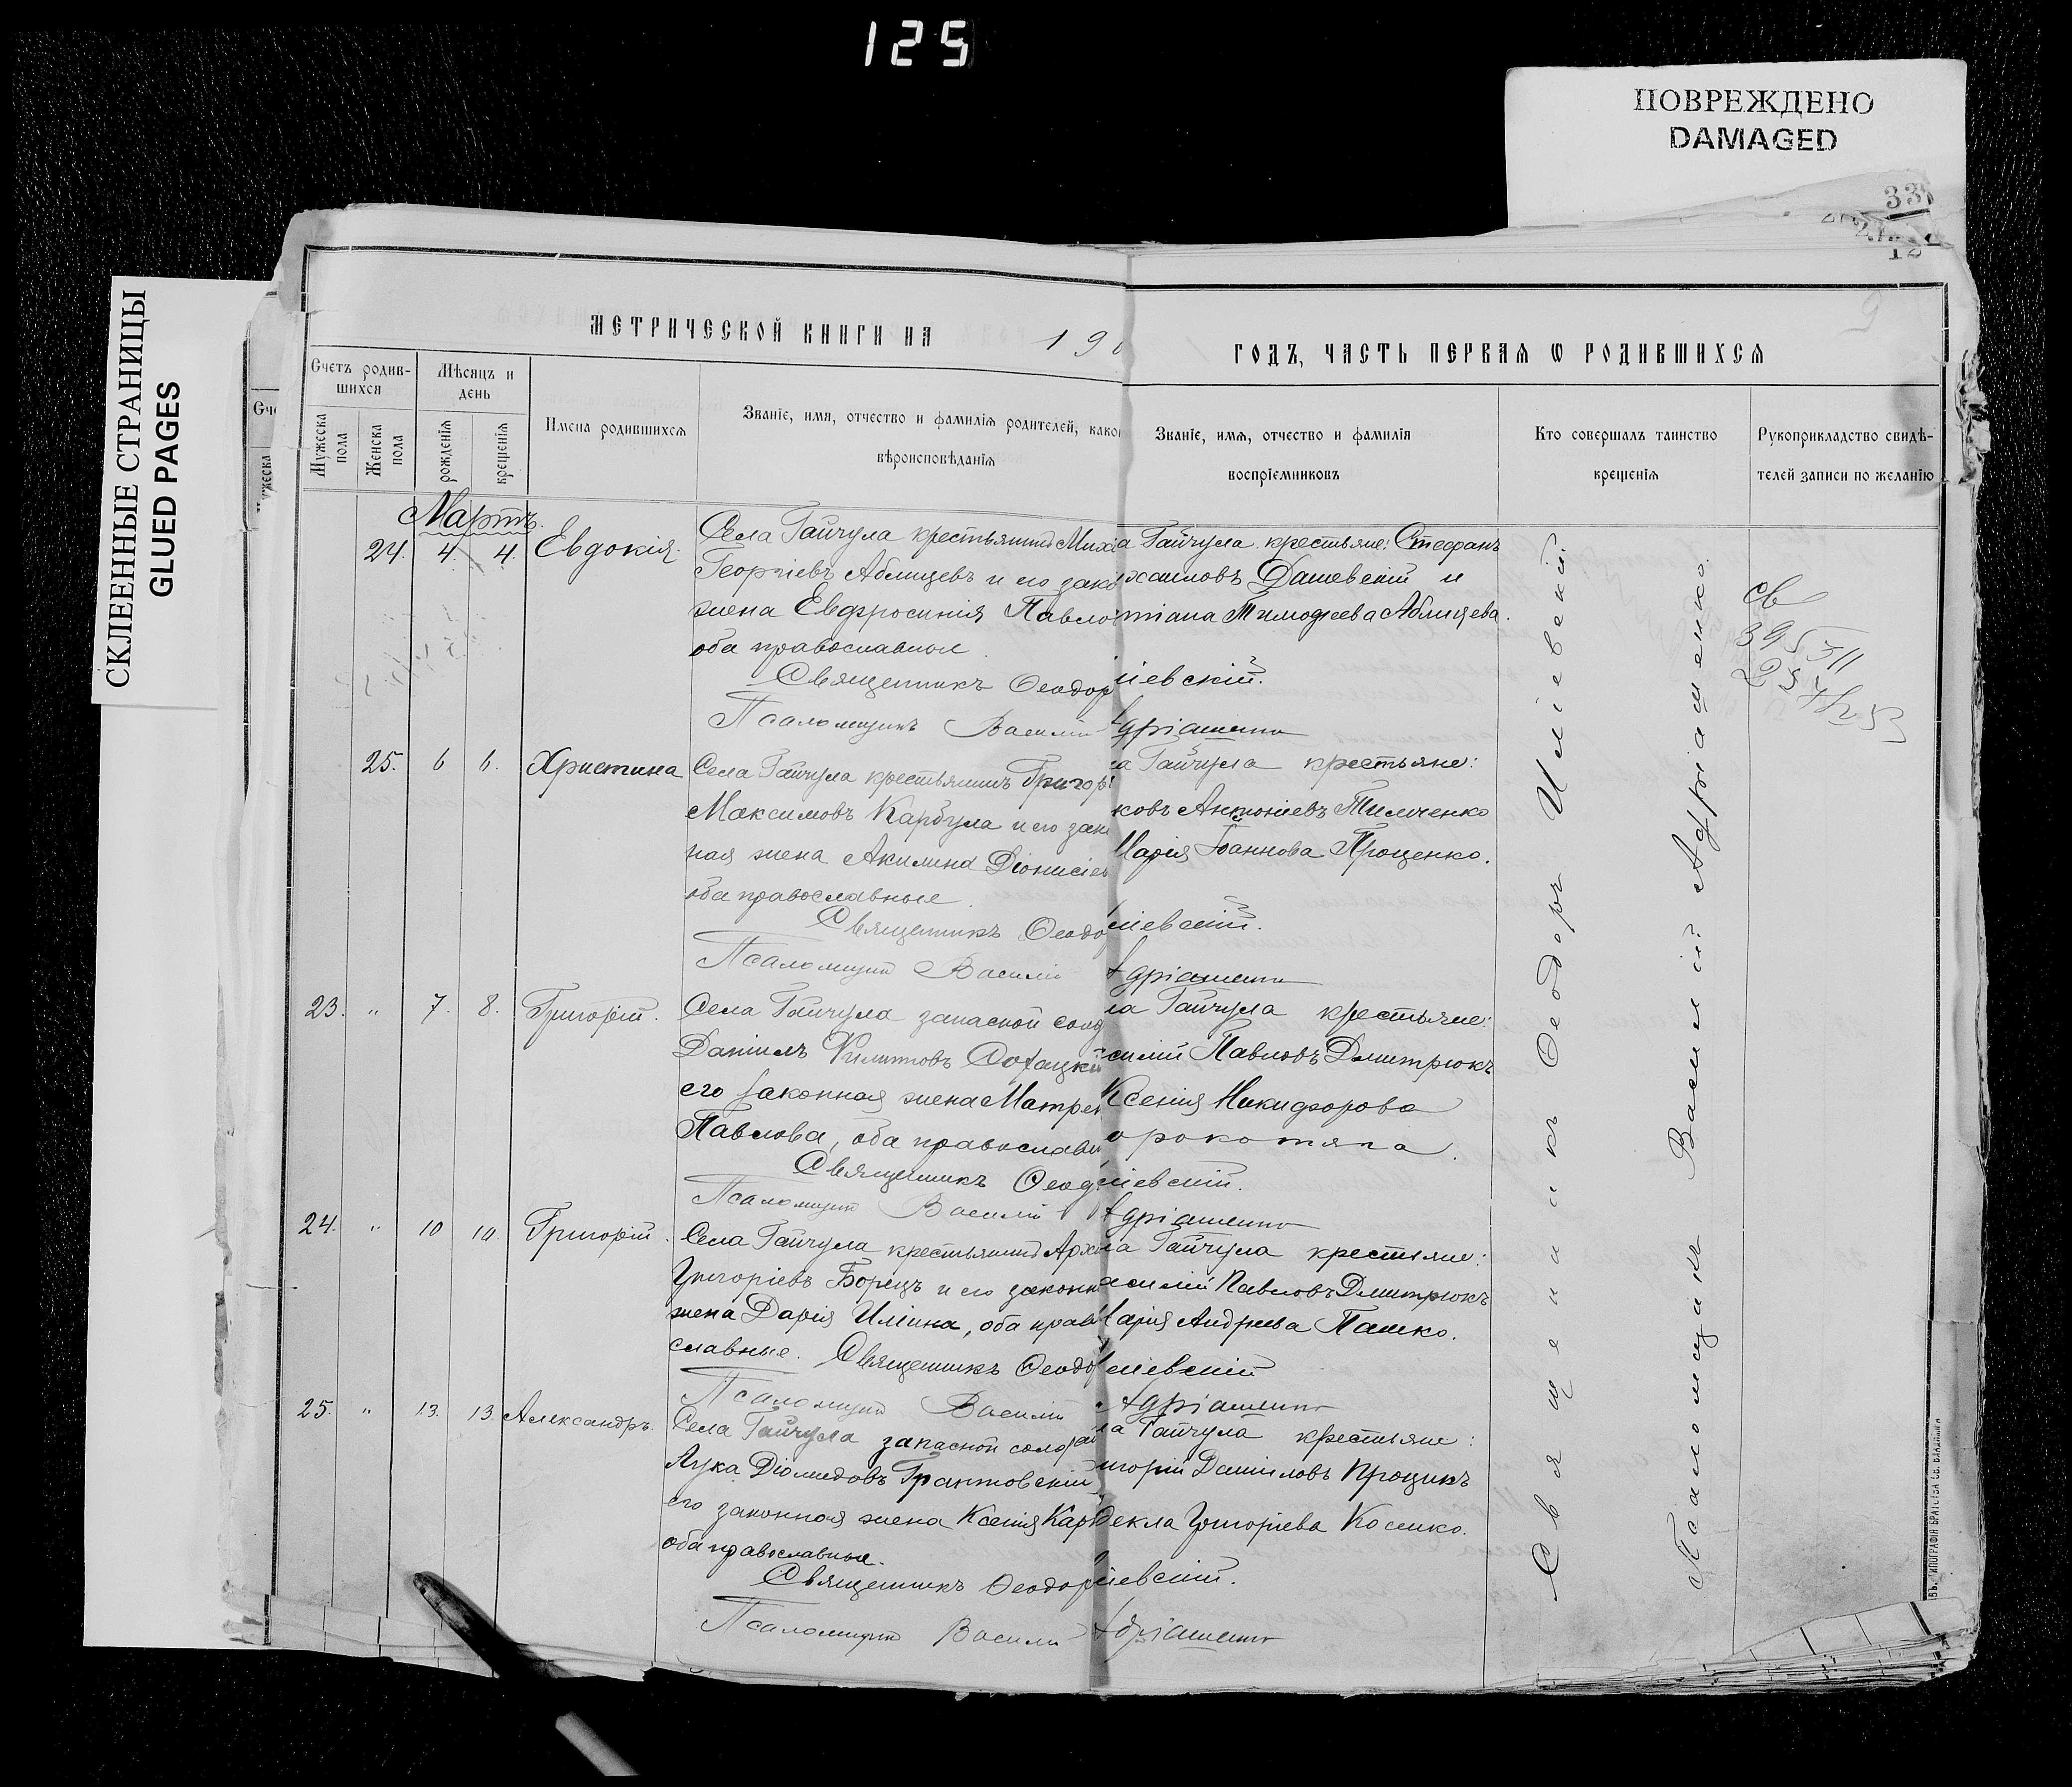 125
ПОВРЕЖДЕНО
DAMAGED
СКЛЕЕННЫЕ СТРАНИЦЫ
GLUED PAGES
33
12
МЕТРИЧЕСКОЙ КНИГИ НА 19
ГОДЪ, ЧАСТЬ ПЕРВАЯ Ѡ РОДИВШИХСЯ
Счетъ родив-
шихся
Мужеска
пола
Женска
пола
Мѣсяцъ и
день
рожденія
крещенія
Имена родившихся
Званіе, имя, отчество и фамилія родителей, како
вѣроисповѣданія
Званіе, имя, отчество и фамилія
воспріемниковъ
Кто совершалъ таинство
крещенія
Рукоприкладство свидѣ-
телей записи по желанію
Мартъ.
24. 4. 4. Евдокія.
Села Гайчула крестьянинъ Миха
Георгіевъ Аблицевъ и его зако
жена Евфросинія Павло
оба православные
Священникъ Ѳеодор
Псаломщикъ Василій
а Гайчула крестьяне: Стефанъ
хаиловъ Дашевскій и
тіана Тимоѳеева Аблицева.
ліевскій.
Адріашенко
25. 6 6. Христина
Села Гайчула крестьянинъ Григорі
Максимовъ Карбула и его зако
ная жена Акилина Діонисіев
оба православные
Священникъ Ѳеодо
Псаломщикъ Василій
ла Гайчула крестьяне:
ковъ Антоніевъ Тимченко
Марія Іоаннова Проценко.
ліевскій.
Адріашенко
23. " 7. 8. Григорій.
Села Гайчула запасной солд
Даніилъ Филиповъ
его законная жена Матрен
Павлова, оба православн
Священникъ Ѳеод
Псаломщикъ Василій
ла Гайчула крестьяне:
силій Павловъ Дмитрюкъ
Ксенія Никифорова
орокотяга.
ліевскій.
Адріашенко
24. " 10 10. Григорій.
Села Гайчула крестьянинъ Архи
Григоріевъ Борецъ и его законн
жена Дарія Ильина, оба прав
славные. Священникъ Ѳеодо
Псаломщикъ Василій
ла Гайчула крестьяне:
асилій Павловъ Дмитрюкъ
Марія Андреева Пашко.
ліевскій
Адріашенко
25. " 13. 13 Александръ.
Села Гайчула запасной солда
Лука Діомидовъ Грактовскій
его законная жена Ксенія Кар
оба православные.
Священникъ Ѳеодор
Псаломщикъ Василій
ла Гайчула крестьяне:
игорій Даніиловъ Процикъ
Ѳекла Григоріева Косенко.
ліевскій.
Адріашенко
Священникъ Ѳеодоръ Иліевскій.
Псаломщикъ Василій Адріашенко.
св